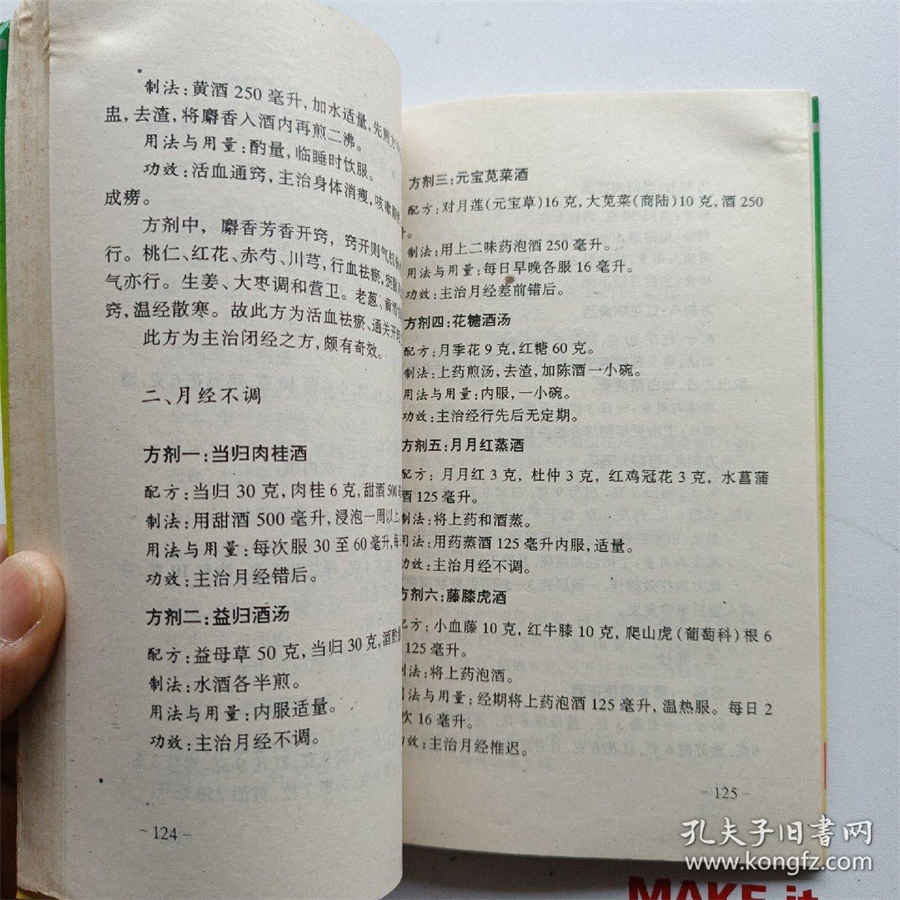 制法:黄酒 250 毫升,加水适量,先煎
盅,去渣,将麝香入酒内再煎二沸。
用法与用量:酌量,临睡时饮服。
功效:活血通窍,主治身体消瘦,咳嗽
成痨。
方剂中,麝香芳香开窍,窍开则气
行。桃仁、红花、赤芍、川芎,行血祛瘀,
气亦行。生姜、大枣调和营卫。老葱、
窍,温经散寒。故此方为活血祛瘀、通关开
此方为主治闭经之方,颇有奇效。
二、月经不调
方剂一:当归肉桂酒
配方:当归 30 克,肉桂 6 克,甜酒 500
制法:用甜酒 500 毫升,浸泡一周以上
用法与用量:每次服 30 至 60 毫升,
功效:主治月经错后。
方剂二:益归酒汤
配方:益母草 50 克,当归 30 克,酒
制法:水酒各半煎。
用法与用量:内服适量。
功效:主治月经不调。
－124－
方剂三:元宝苋菜酒
配方:对月莲(元宝草)16 克,大苋菜(商陆)10 克,酒 250
升。
制法:用上二味药泡酒 250 毫升。
用法与用量:每日早晚各服 16 毫升。
功效:主治月经差前错后。
方剂四:花糖酒汤
配方:月季花 9 克,红糖 60 克。
制法:上药煎汤,去渣,加陈酒一小碗。
用法与用量:内服,一小碗。
功效:主治经行先后无定期。
方剂五:月月红蒸酒
配方:月月红 3 克,杜仲 3 克,红鸡冠花 3 克,水菖蒲
酒 125 毫升。
制法:将上药和酒蒸。
用法与用量:用药蒸酒 125 毫升内服,适量。
功效:主治月经不调。
方剂六:藤膝虎酒
配方:小血藤 10 克,红牛膝 10 克,爬山虎(葡萄科)根 6
125 毫升。
制法:将上药泡酒。
用法与用量:经期将上药泡酒 125 毫升,温热服。每日 2
次 16 毫升。
功效:主治月经推迟。
－125－
孔夫子旧书网
www.kongfz.com
MAKE it